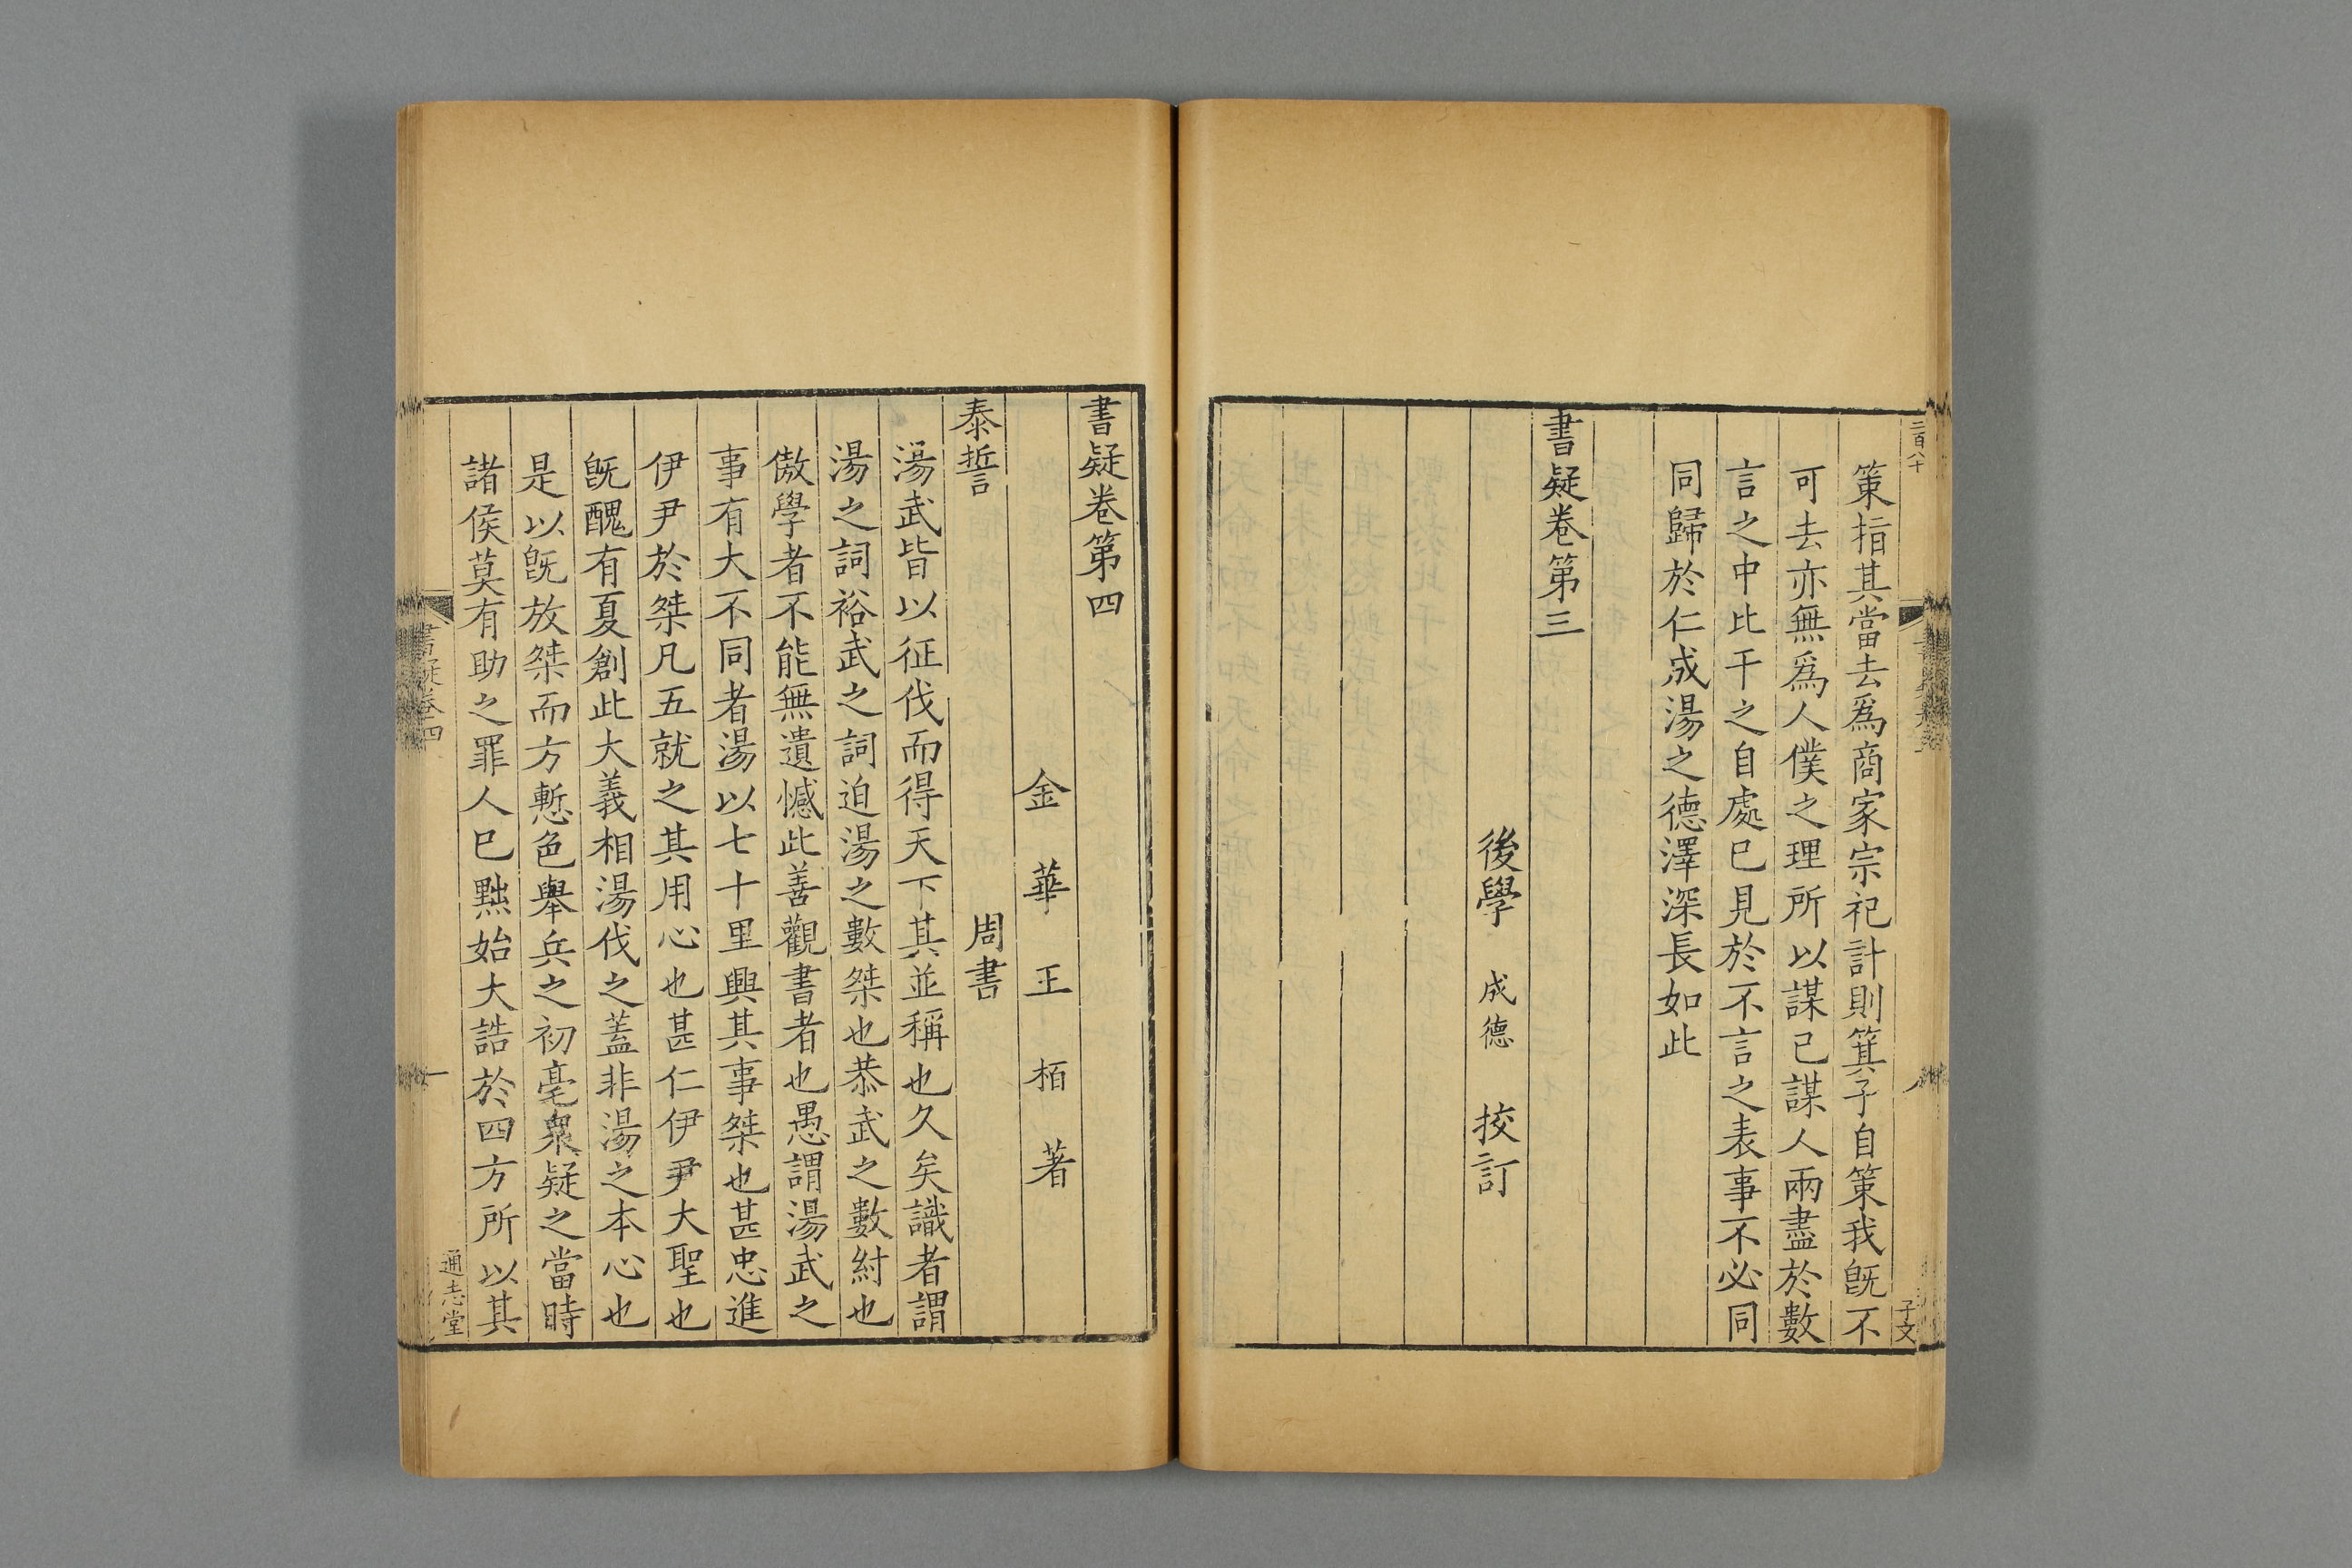 二百八十
子文
策指其當去爲商家宗祀計則箕子自策我旣不
可去亦無爲人僕之理所以謀已謀人兩盡於數
言之中比干之自處巳見於不言之表事不必同
同歸於仁成湯之德澤深長如此
書疑卷第三
後學 成德 挍訂
書疑卷第四
金華王栢著
泰誓 周書
湯武皆以征伐而得天下其並稱也久矣識者謂
湯之詞裕武之詞迫湯之數桀也恭武之數紂也
傲學者不能無遺憾此善觀書者也愚謂湯武之
事有大不同者湯以七十里興其事桀也甚忠進
伊尹於桀凡五就之其用心也甚仁伊尹大聖也
旣醜有夏創此大義相湯伐之蓋非湯之本心也
是以旣放桀而方慙色舉兵之初亳衆疑之當時
諸侯莫有助之罪人巳黜始大誥於四方所以其
書疑卷四
一
通志堂